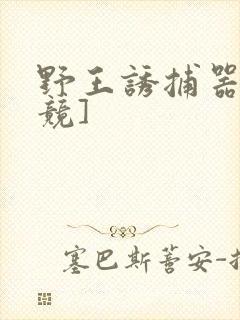 野王誘捕器
競]
塞巴斯蒼安-